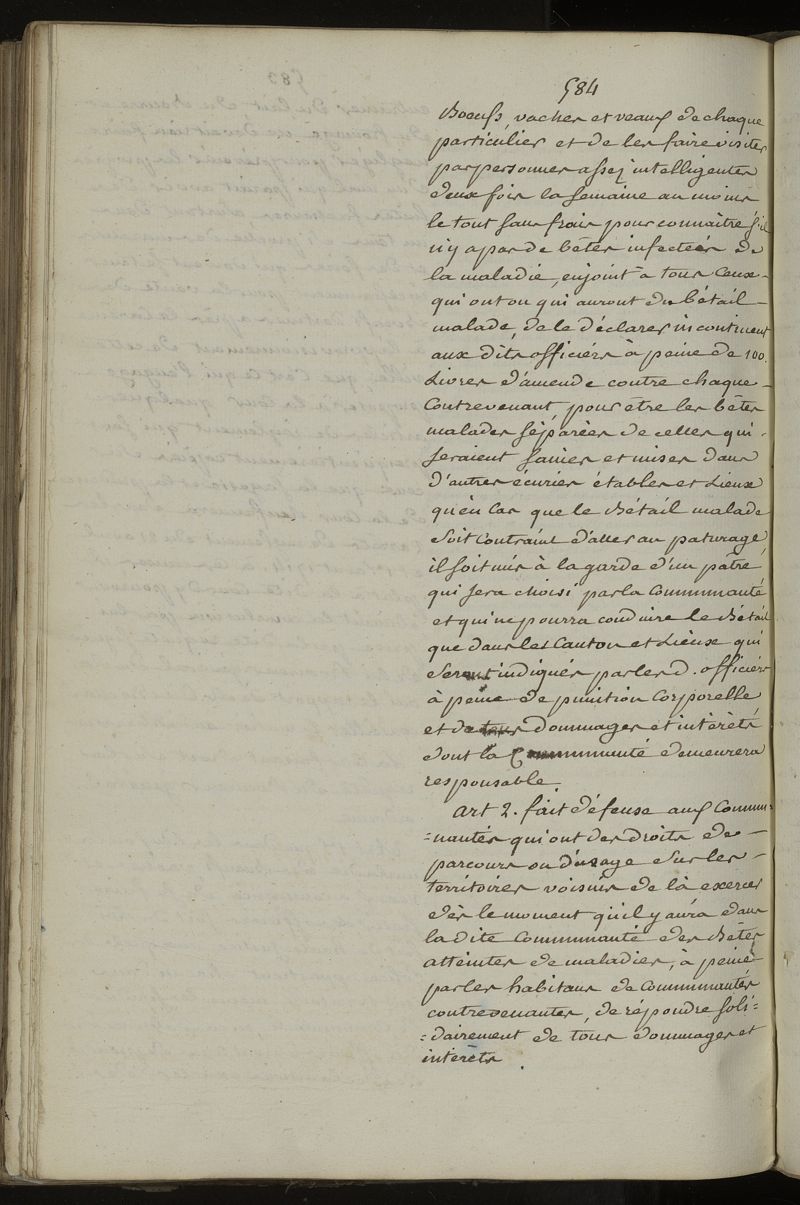 584
Boeufs, vaches et veaux de chaque
particulier et de les faire visiter
par personnes assez intelligentes
deux fois la semaine au moins
le tout sans frais pour connaître s'il
n'y a pas de betes infectées de
la maladie, enjoint à tous Ceux
qui ont ou qui auront du bétail
malade, de le déclarer incontinent
aux dits officiérs à peine de 100.
Livres d'amende contre chaque
Contrevenant, pour être les bêtes
malades séparées de celles qui
seraient saines et mises dans
d'autres écuries étables et Lieux
qu'en Cas que le Bétail malade
soit Contraint d'aller au paturage
il soit mis à la garde d'un pâtre
qui sera choisi par la Communauté
et qui ne pourra conduire le Bétail
que dans les Canton et Lieux qui
seront indiqués par les d. officiérs
à peine de punition Corporelle
et de tous dommages et intérèts
dont la Communauté demeurera
responsable.
Art 2. fait défense aux Commu=
=nautés qui ont des droits de
parcours ou d'usage sur les
territoires voisins de là exercer
dès le moment qu'il y aura dans
la dite Communauté des Bêtes
atteintes de maladies, à peine
par les habitans de Communautés
contrevenantes, de répondre soli=
=dairement de tous dommages et
intérèts.